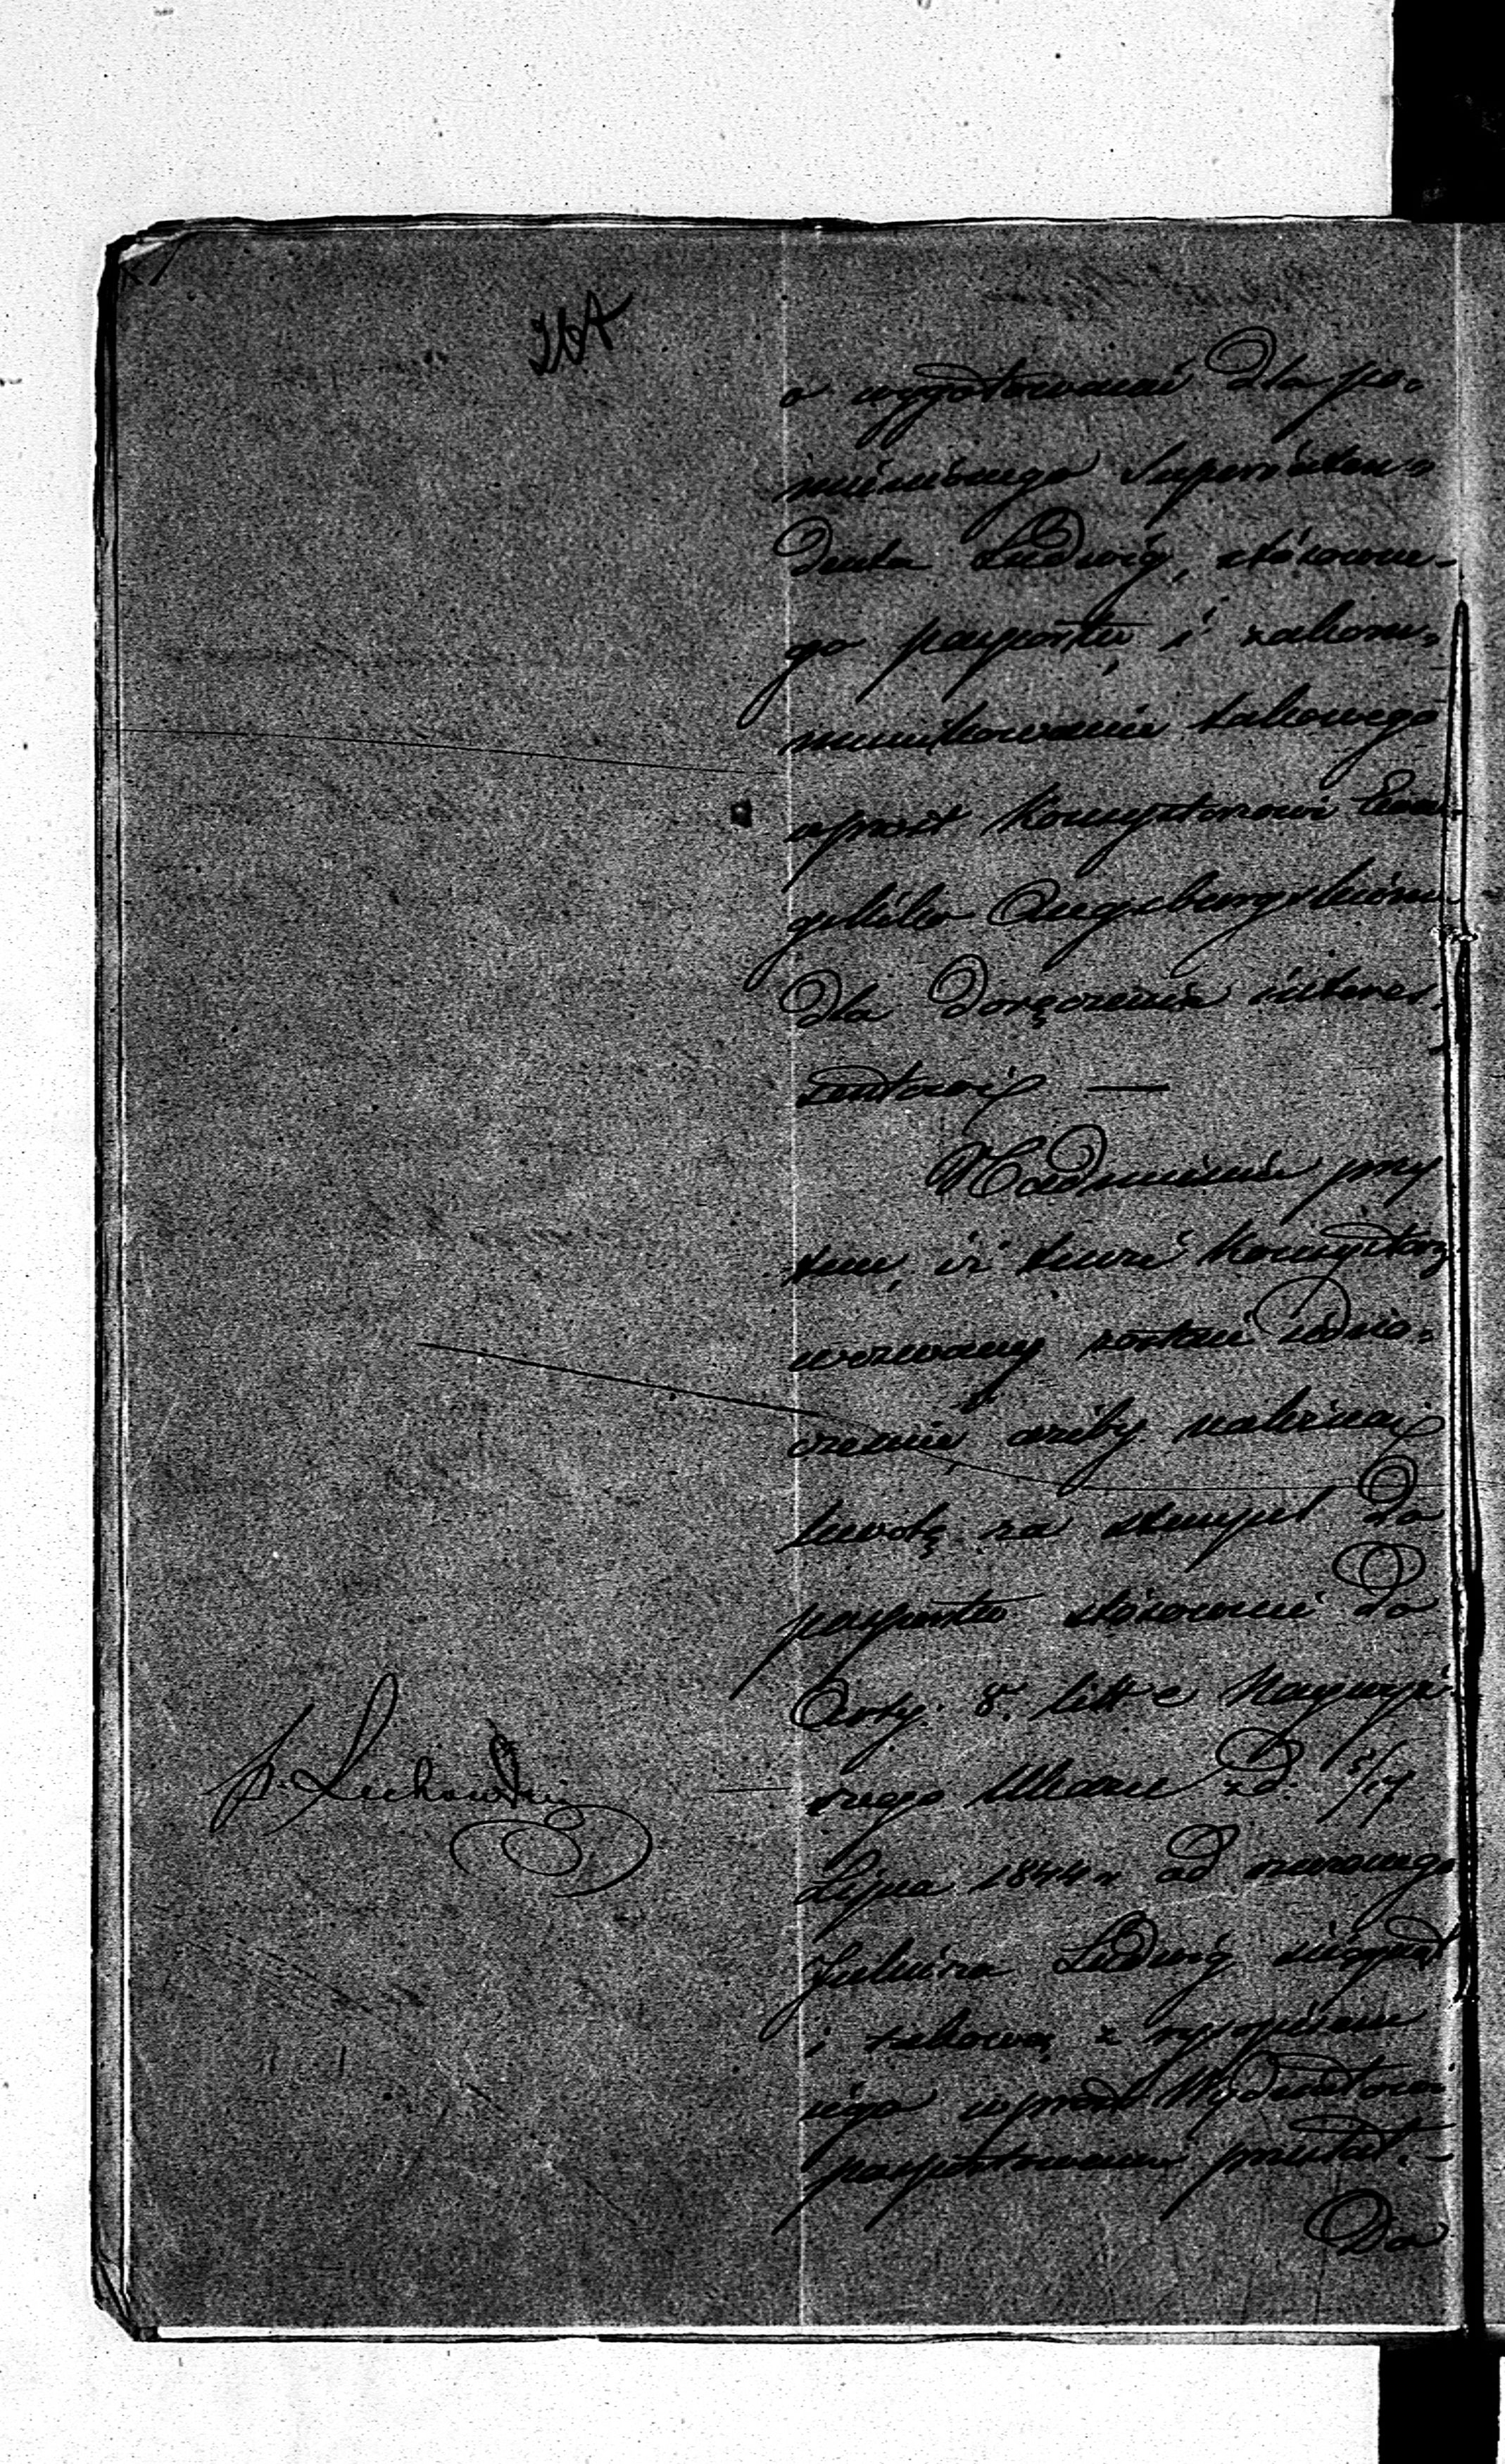 o wygotowanie dla po-
mienionego Superinten-
denta Ludwig, stósowne-
go paszportu i zakom-
munikowanie takowego
wprost Konsystorzowi Ewan-
gelicko Augsburgskiemu
dla doręczenia interes-
sentowi —
Nadmienia przy
tem, iż tenże Konsystorz
wezwany zostaje jedno-
cześnie ażeby należną
kwotę za stempel do
paszportu stósownie do
Arty: 8. litt c Najwyż-
szego Ukazu z d. 5/17
Lipca 1844 r od rzeczonego
Juliusza Ludwig ściągnął
i takową z rys opisem
jego wprost Wydziałowi
paszportowemu przesłał.-
Do